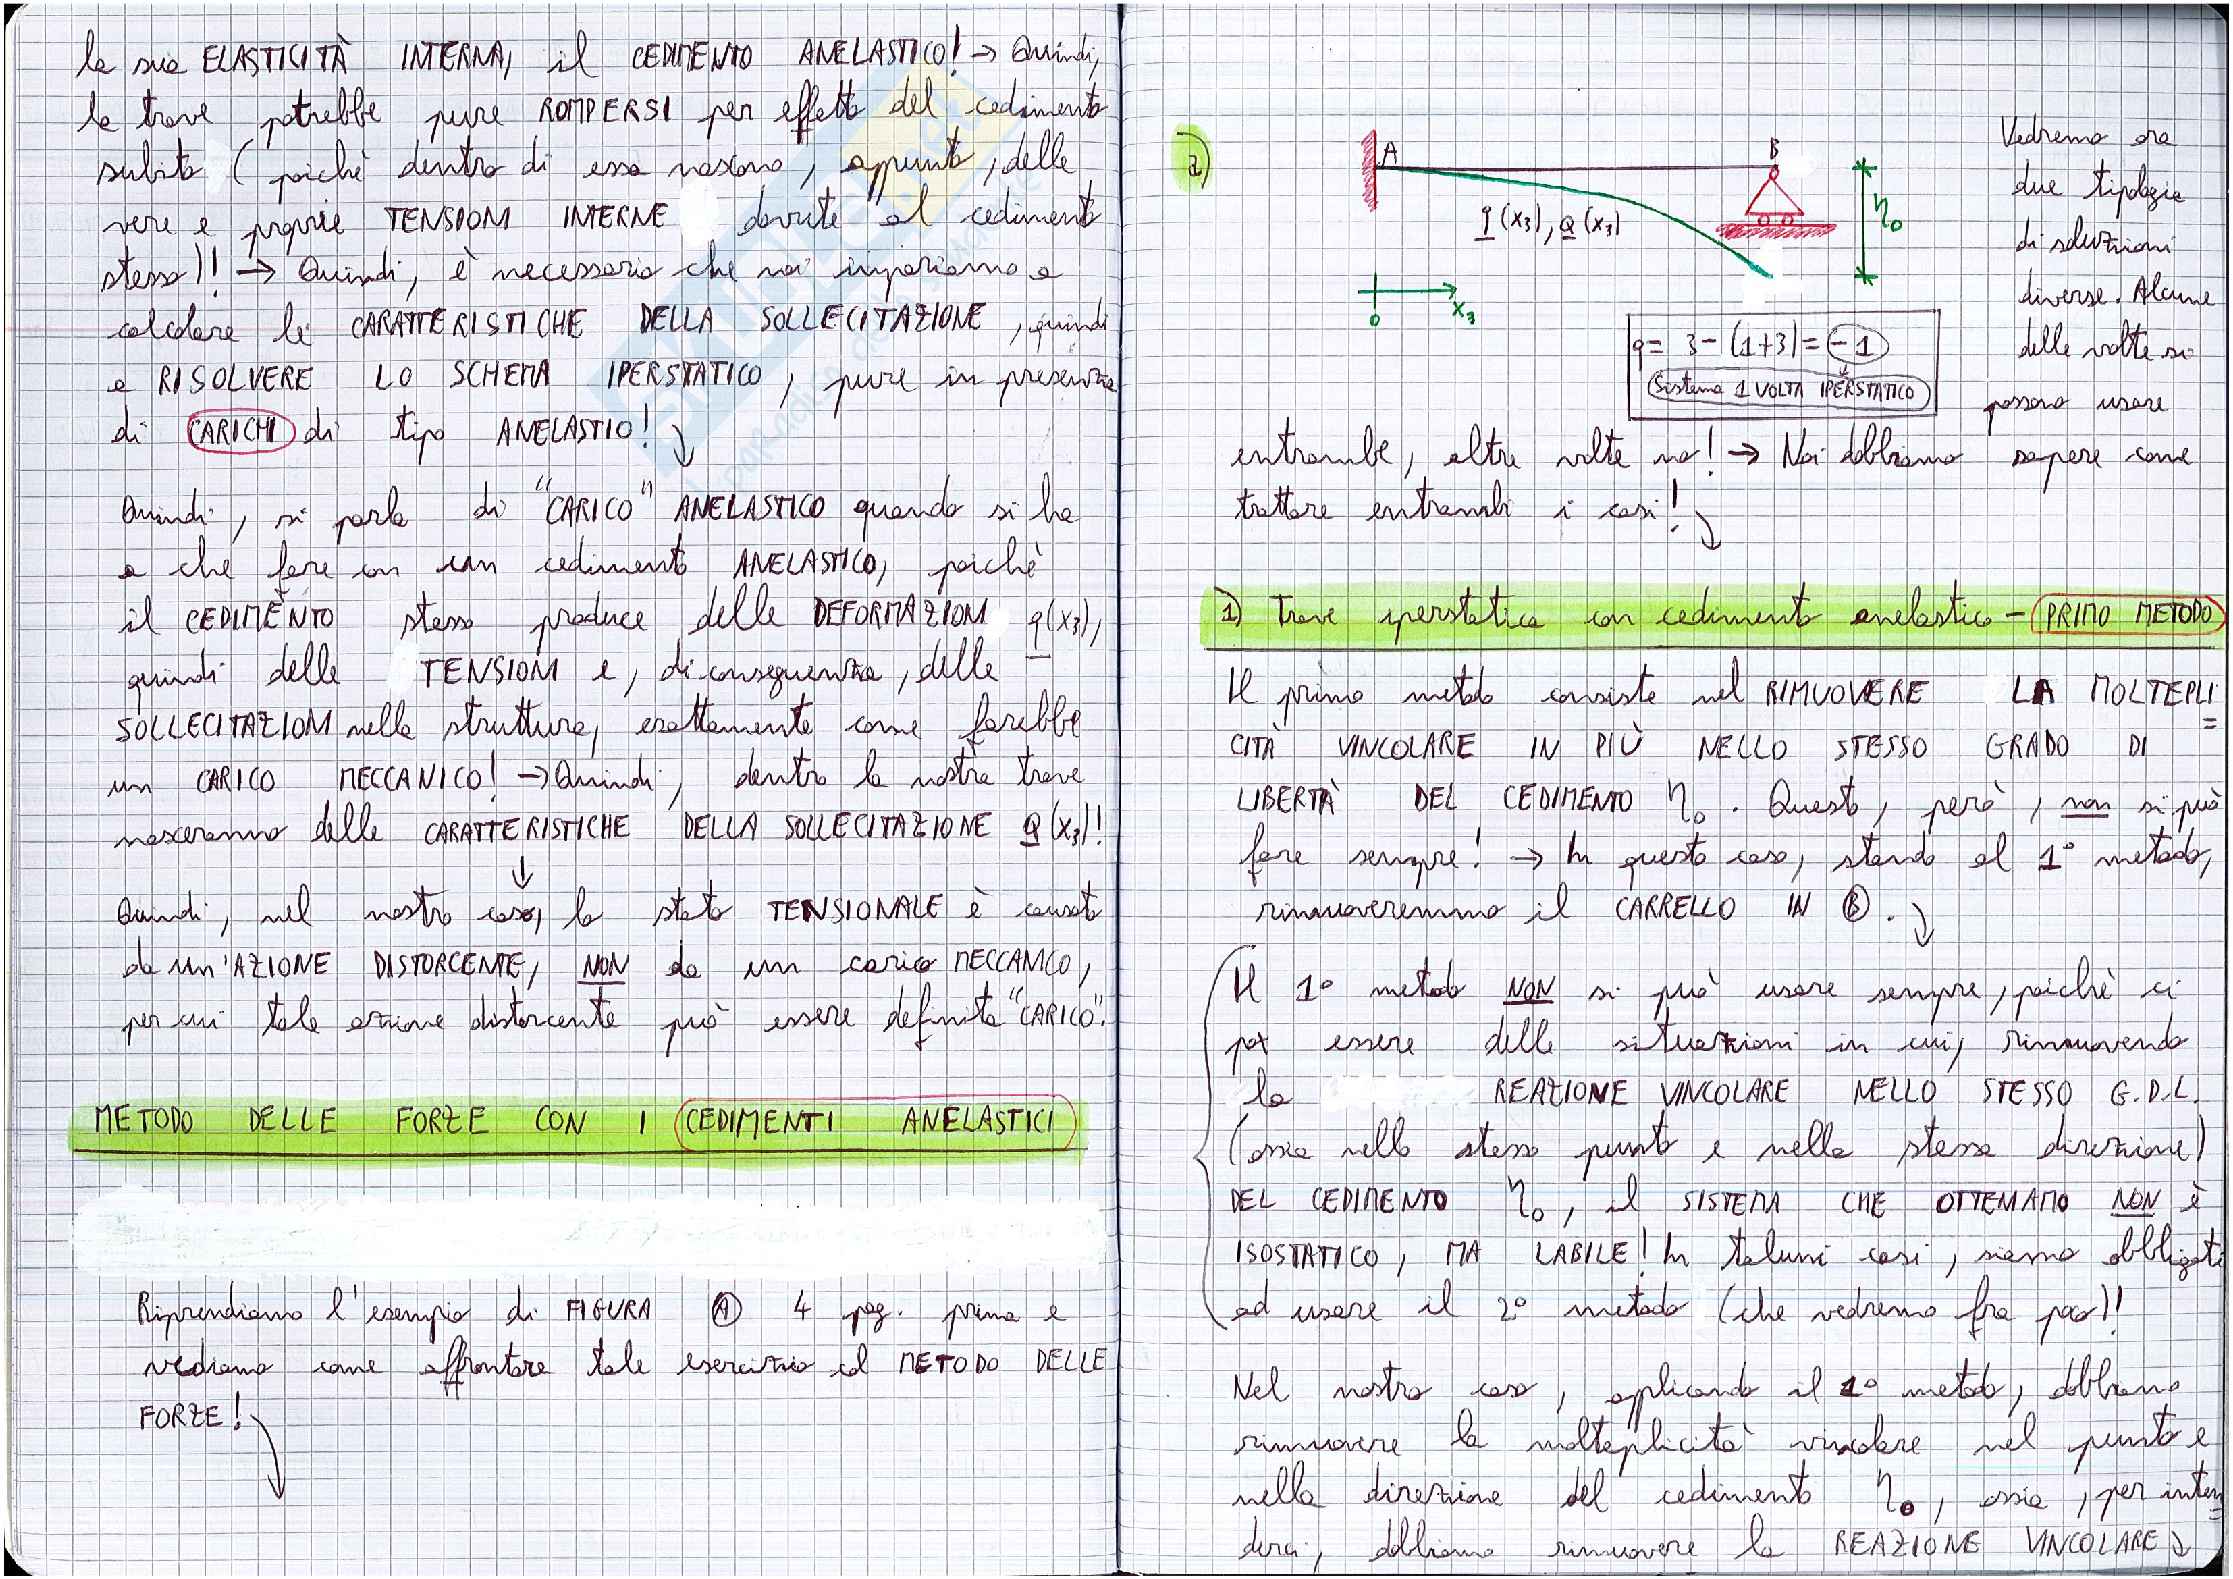 la sua ELASTICITÀ INTERNA, il CEDIMENTO ANELASTICO! → Quindi,
la trave potrebbe pure ROMPERSI per effetto del cedimento
subito (poichè dentro di essa nascono, appunto, delle
vere e proprie TENSIONI INTERNE dovute al cedimento
stesso)! → Quindi, è necessario che noi impariamo a
calcolare le CARATTERISTICHE DELLA SOLLECITAZIONE, quindi
a RISOLVERE LO SCHEMA IPERSTATICO, pure in presenza
di CARICHI di tipo ANELASTIO!
Quindi, si parla di "CARICO" ANELASTICO quando si ha
a che fare con un cedimento ANELASTICO, poichè
il CEDIMENTO stesso produce delle DEFORMAZIONI q(x₃),
quindi delle TENSIONI e, di conseguenza, delle
SOLLECITAZIONI nella struttura, esattamente come farebbe
un CARICO MECCANICO! → Quindi, dentro la nostra trave
nasceranno delle CARATTERISTICHE DELLA SOLLECITAZIONE Q(x₃)!
↓
Quindi, nel nostro caso, lo stato TENSIONALE è causato
da un'AZIONE DISTORCENTE, NON da un carico MECCANICO,
per cui tale azione distorcente può essere definita "CARICO".
METODO DELLE FORZE CON I CEDIMENTI ANELASTICI
Riprendiamo l'esempio di FIGURA Ⓐ 4 pag. prima e
vediamo come affrontare tale esercizio col METODO DELLE
FORZE!
2)
A
B
q(x₃), Q(x₃)
η₀
0
x₃
q = 3-(1+3) = -1
Sistema 1 VOLTA IPERSTATICO
Vedremo ora
due tipologie
di soluzioni
diverse. Alcune
delle volte si
possono usare
entrambe, altre volte no! → Noi dobbiamo sapere come
trattare entrambi i casi!
1) Trave iperstatica con cedimento anelastico - PRIMO METODO
Il primo metodo consiste nel RIMUOVERE LA MOLTEPLI=
CITÀ VINCOLARE IN PIÙ NELLO STESSO GRADO DI
LIBERTÀ DEL CEDIMENTO η₀. Questo, però, non si può
fare sempre! → In questo caso, stando al 1° metodo,
rimuoveremmo il CARRELLO IN Ⓑ.
Il 1° metodo NON si può usare sempre, poichè ci
pox essere delle situazioni in cui, rimuovendo
la REAZIONE VINCOLARE NELLO STESSO G.D.L.
(ossia nello stesso punto e nella stessa direzione)
DEL CEDIMENTO η₀, il SISTEMA CHE OTTENIAMO NON è
ISOSTATICO, MA LABILE! In taluni casi, siamo obbligati
ad usare il 2° metodo (che vedremo fra poco)!
Nel nostro caso, applicando il 1° metodo, dobbiamo
rimuovere la molteplicità vincolare nel punto e
nella direzione del cedimento η₀, ossia, per inten=
derci, dobbiamo rimuovere la REAZIONE VINCOLARE